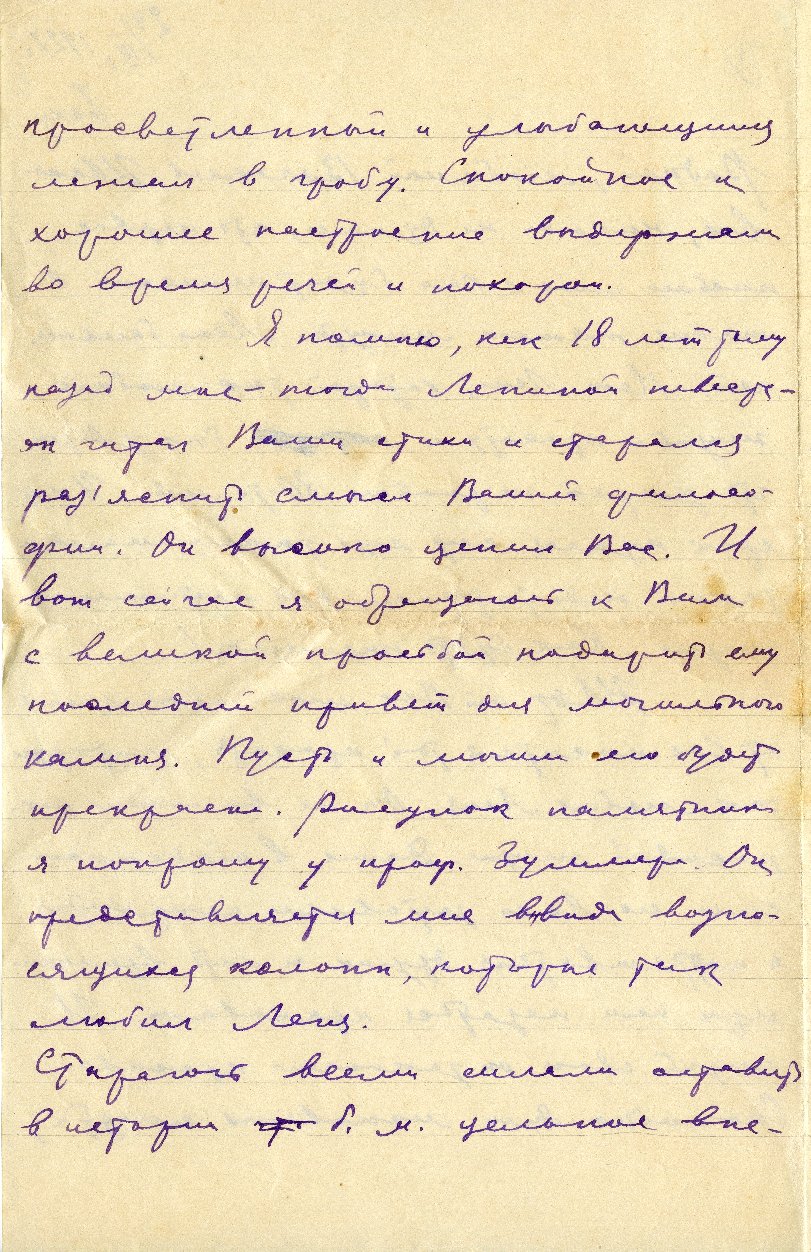 просветленный и улыбающийся
лежал в гробу. Спокойное и
хорошее настроение выдержал
во время речей и похорон.
Я помню, как 18 лет тому
назад мне — тогда Лениной невесте —
он читал Ваши стихи и старался
раз'яснить смысл Вашей филосо-
фии. Он высоко ценил Вас. И
вот сейчас я обращаюсь к Вам
с великой просьбой подарить ему
последний привет для могильного
камня. Пусть и могила его будет
прекрасна. Рисунок памятника
я попрошу у проф. Зуммера. Он
представляется мне в виде возно-
сящихся колонн, которые так
любил Леня.
Стараюсь всеми силами оставить
в истории б. м. цельное впе-